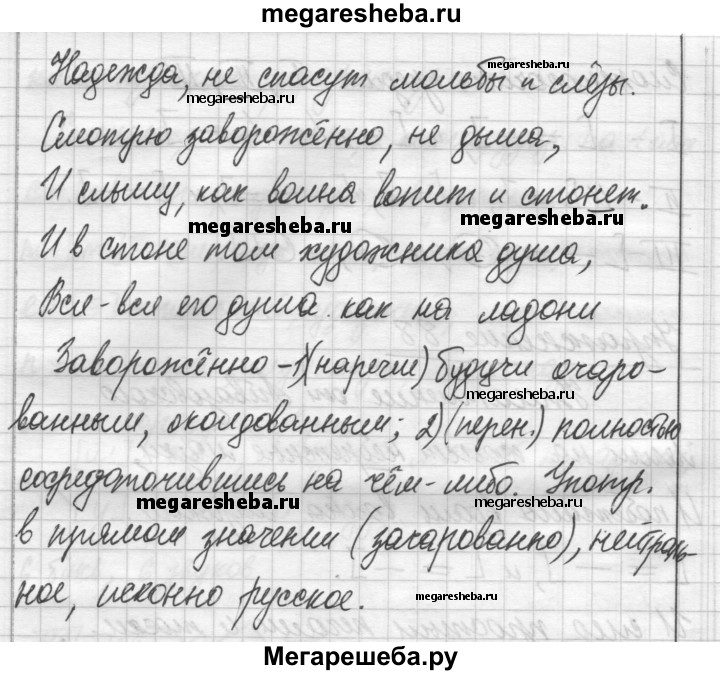 megaresheba.ru
Надежда, не спасут мольбы и слёзы.
megaresheba.ru
megaresheba.ru
Смотрю заворожённо, не дыша,
megaresheba.ru
И слышу, как волна вопит и стонет.
megaresheba.ru
megaresheba.ru
И в стоне том художника душа,
Вся-вся его душа как на ладони
Заворожённо -1)(наречие) будучи очаро-
megaresheba.ru
ванным, околдованным; 2)(перен.) полностью
сосредоточившись на чём-либо. Употр.
megaresheba.ru
megaresheba.ru
в прямом значении (зачарованно), нейтраль-
ное, исконно русское.
megaresheba.ru
Мегарешеба.ру